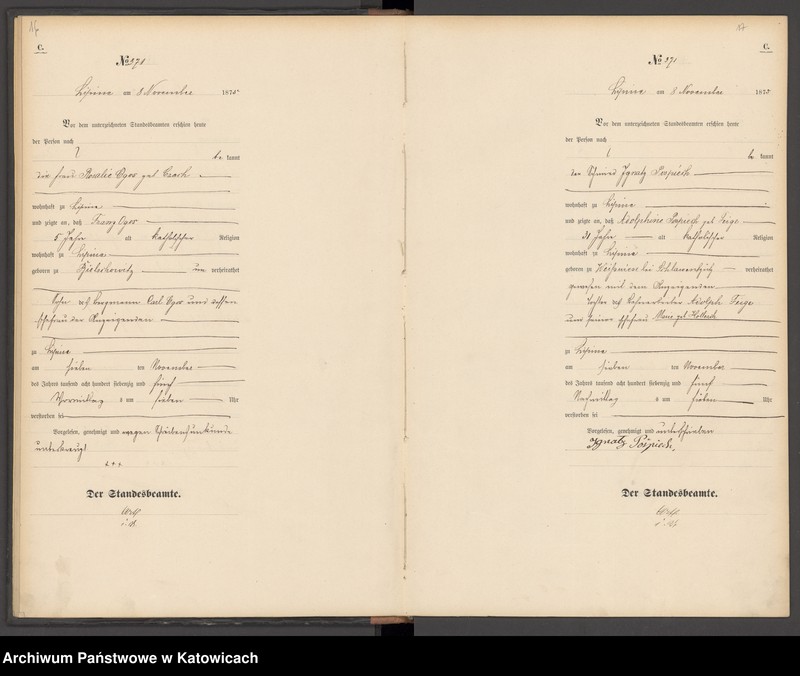 C.
No 371
Lipine am 8 November 1875
Vor dem unterzeichneten Standesbeamten erschien heute
der Person nach
be kannt
die Frau Rosalie Ogor geb. Czech
wohnhaft zu Lipine
und zeigte an, daß Franz Ogor
5 Jahr alt katholischer Religion
wohnhaft zu Lipine
geboren zu Bielschowitz un verheirathet
Sohn des Bergmann Carl Ogor und dessen
Ehefrau der Anzeigenden
zu Lipine
am sieben ten November
des Jahres tausend acht hundert siebenzig und fünf
Vormittag s um sieben Uhr
verstorben sei
Vorgelesen, genehmigt und wegen Schreibensunkunde
unterkreuzt
+++
Der Standesbeamte.
17
C.
No 371
Lipine am 8 November 1875
Vor dem unterzeichneten Standesbeamten erschien heute
der Person nach
be kannt
der Schmied Ignatz Pospiech
wohnhaft zu Lipine
und zeigte an, daß Adolphine Pospiech geb. Feige
31 Jahr alt katholischer Religion
wohnhaft zu Lipine
geboren zu bei Schlawentzitz verheirathet
gewesen mit dem Anzeigenden
Tochter des Adolph Feige
und seiner Ehefrau Marie geb.
zu Lipine
am sieben ten November
des Jahres tausend acht hundert siebenzig und fünf
Nachmittag s um sieben Uhr
verstorben sei
Vorgelesen, genehmigt und unterschrieben
Ignatz Pospiech.
Der Standesbeamte.
Archiwum Państwowe w Katowicach